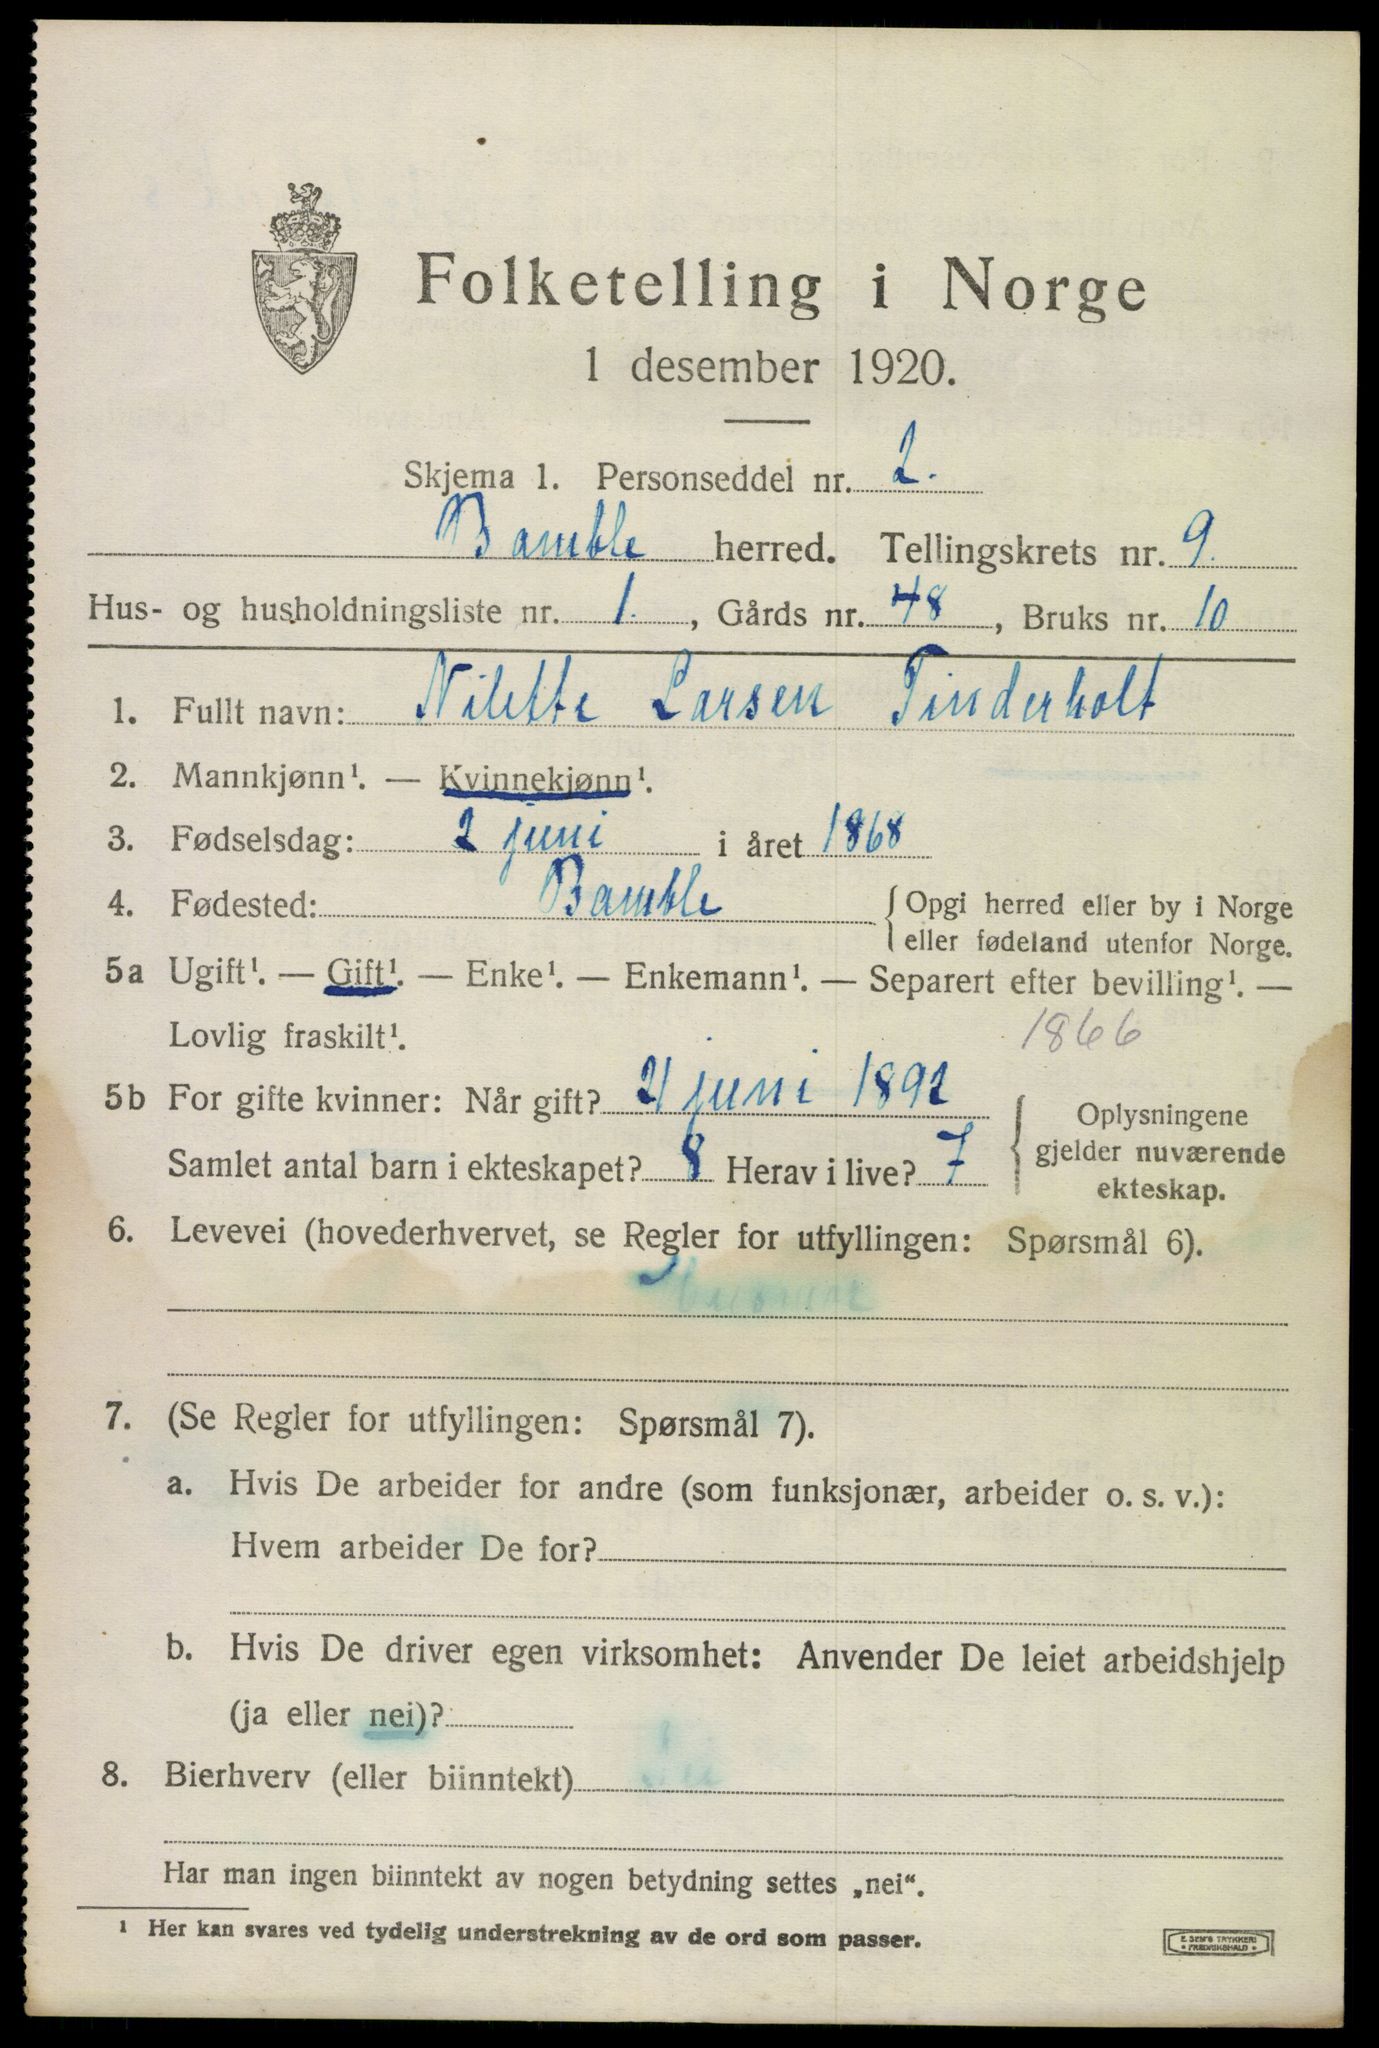 Folketelling i Norge
1 desember 1920.
Skjema 1. Personseddel nr. 2.
Bamble herred. Tellingskrets nr. 9.
Hus- og husholdningsliste nr. 1., Gårds nr. 48, Bruks nr. 10
1. Fullt navn: Nilette Larsen Tinderholt
2. Mannkjønn¹. — Kvinnekjønn¹.
3. Fødselsdag: 2 juni i året 1868
4. Fødested: Bamble { Opgi herred eller by i Norge
eller fødeland utenfor Norge.
5a Ugift¹. — Gift¹. — Enke¹. — Enkemann¹. — Separert efter bevilling¹. —
Lovlig fraskilt¹.
1866
5b For gifte kvinner: Når gift? 21 juni 1892
Samlet antal barn i ekteskapet? 8 Herav i live? 7
{ Oplysningene
gjelder nuværende
ekteskap.
6. Levevei (hovederhvervet, se Regler for utfyllingen: Spørsmål 6).
7. (Se Regler for utfyllingen: Spørsmål 7).
a. Hvis De arbeider for andre (som funksjonær, arbeider o. s. v.):
Hvem arbeider De for?
b. Hvis De driver egen virksomhet: Anvender De leiet arbeidshjelp
(ja eller nei)?
8. Bierhverv (eller biinntekt)
Har man ingen biinntekt av nogen betydning settes „nei“.
¹ Her kan svares ved tydelig understrekning av de ord som passer.
E. SEM'S TRYKKERI
• FREDRIKSHALD •